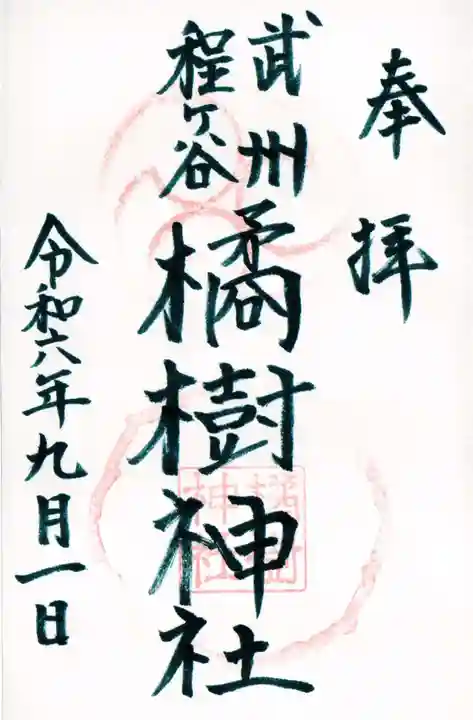 奉拝
武州
程ヶ谷
橘樹神社
令和六年九月一日
橘樹
神社